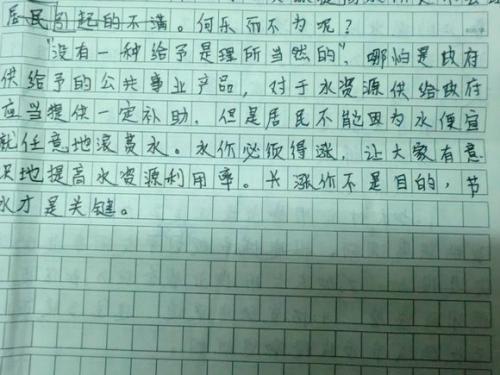 居民引起的不满。何乐而不为呢?
"没有一种给予是理所当然的",哪怕是政府
供给予的公共事业产品,对于水资源供给政府
应当提供一定补助,但是居民不能因为水便宜
就任意地浪费水。水价必须得涨,让大家有意
识地提高水资源利用率。长涨价不是目的,节
水才是关键。